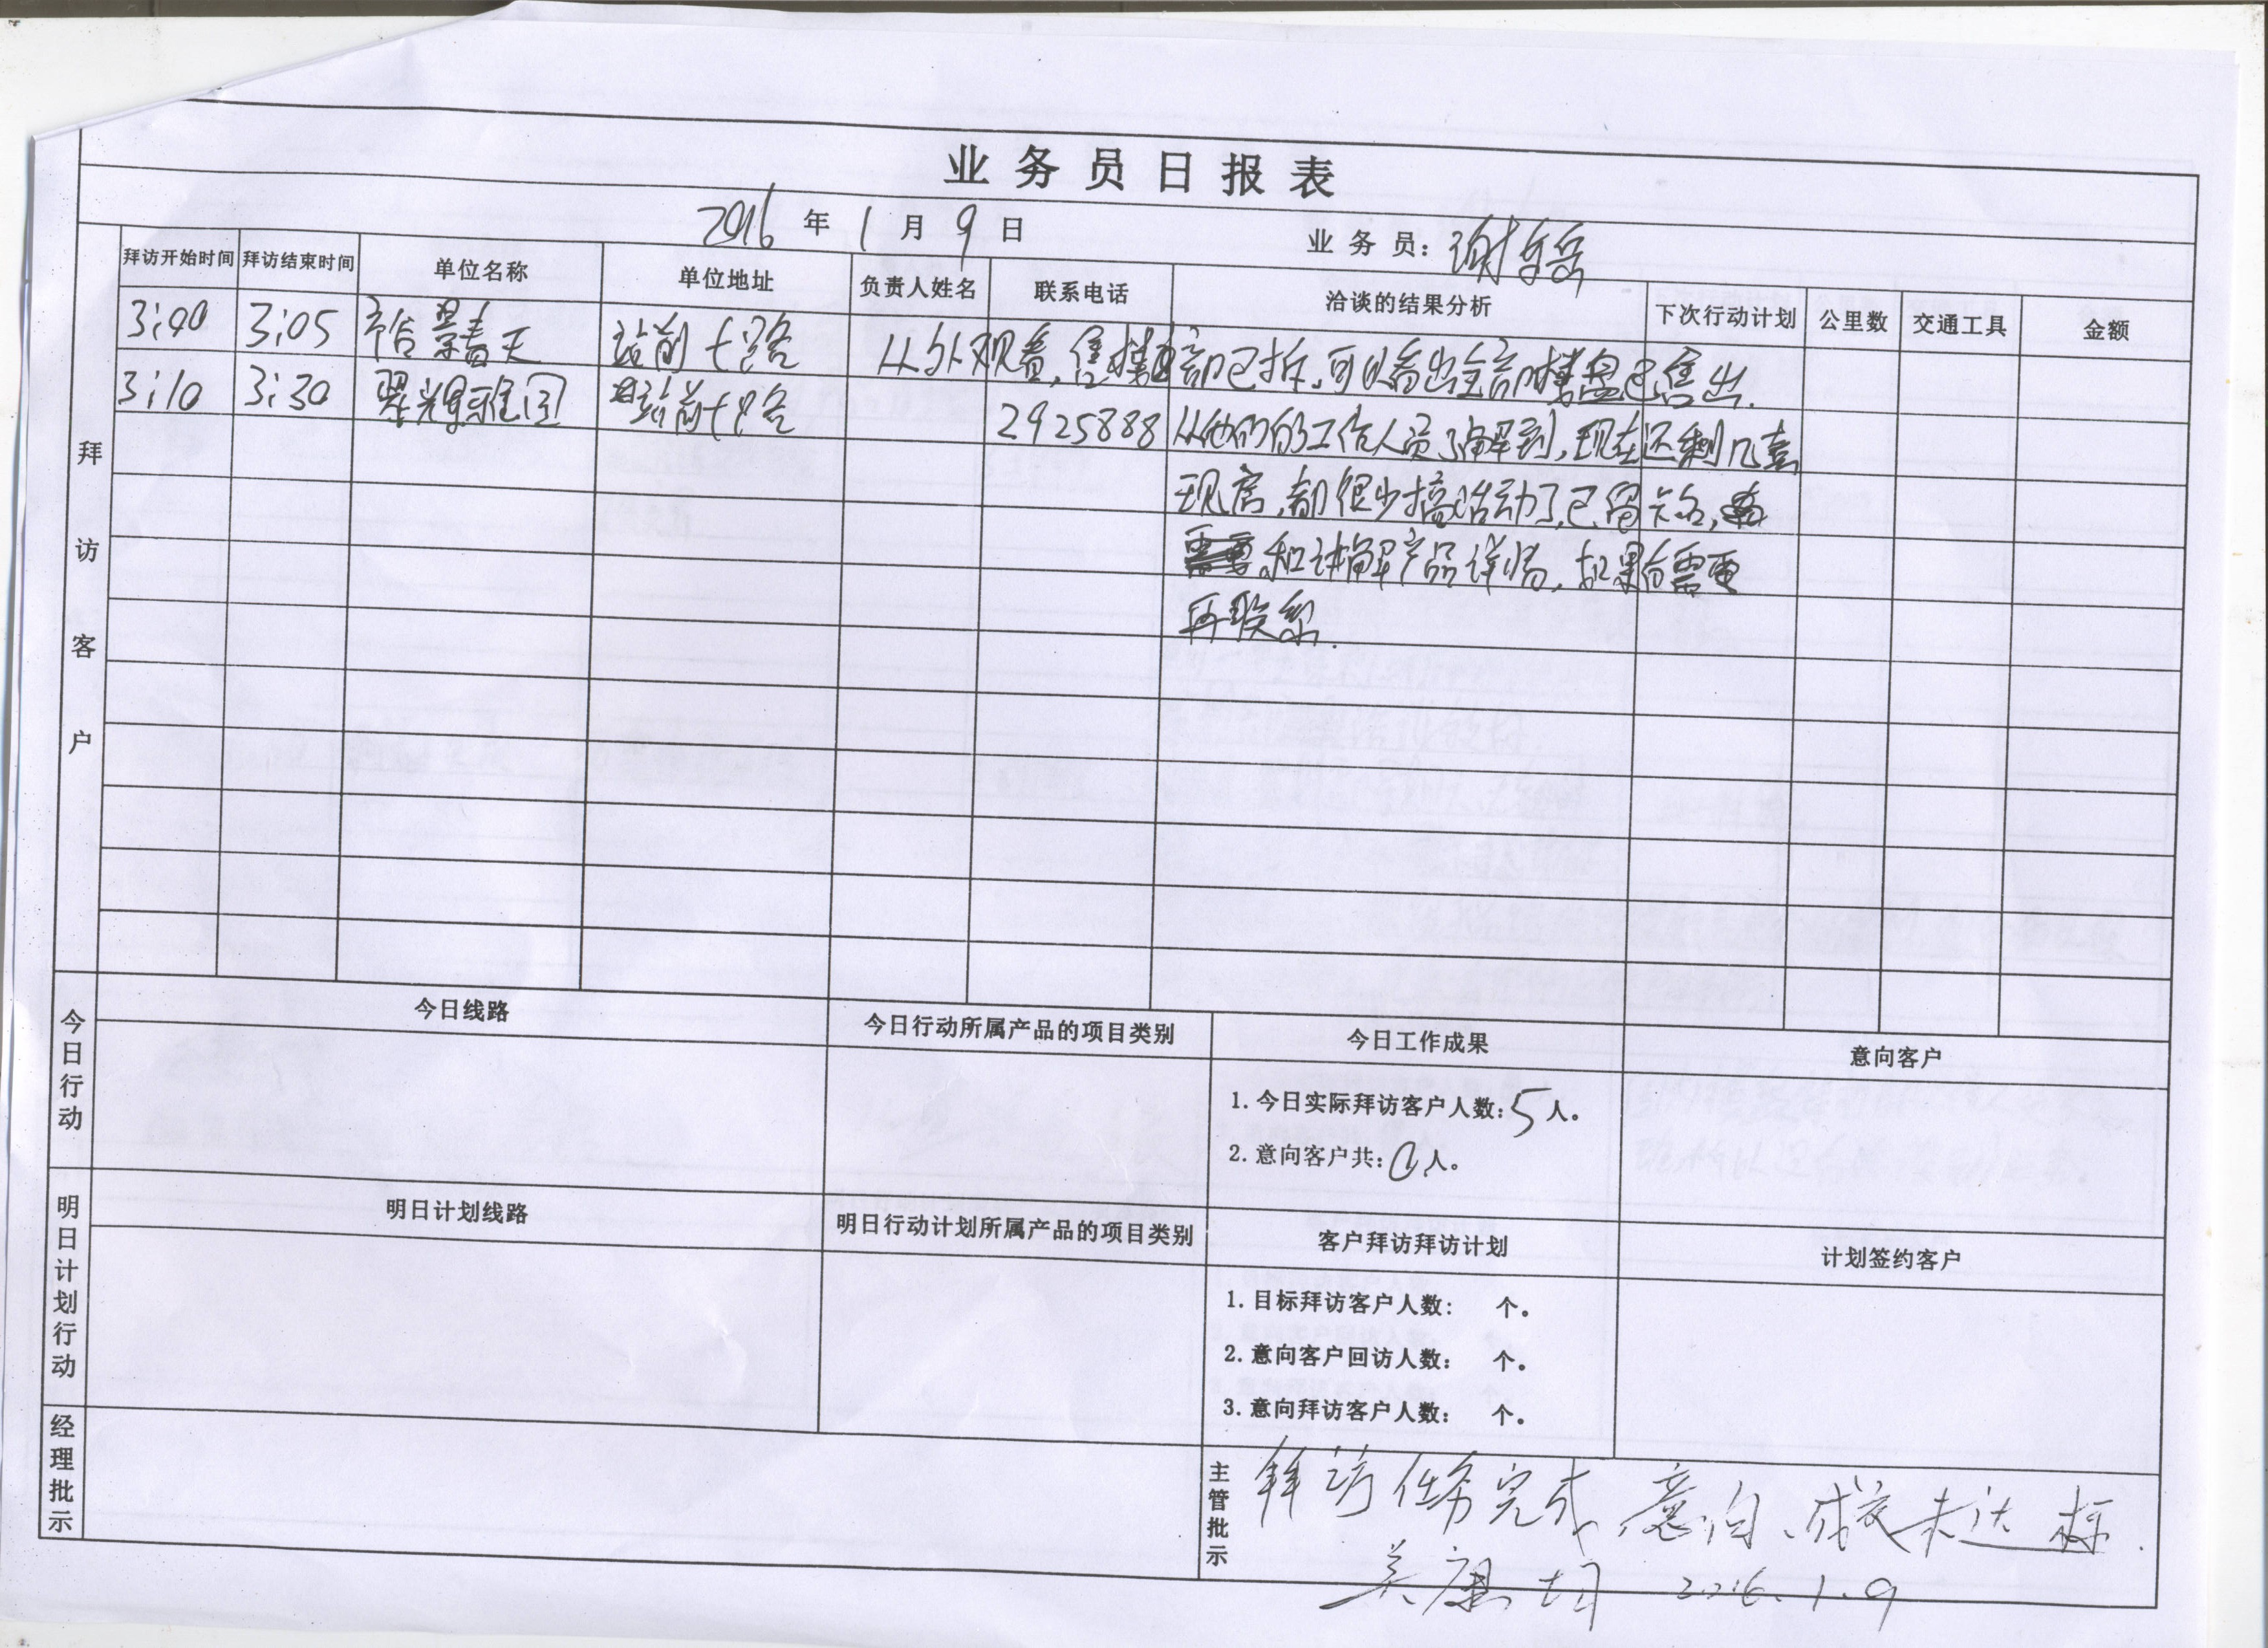 业务员日报表
2016 年 1 月 9 日 业务员: 谢
拜访客户
拜访开始时间 拜访结束时间 单位名称 单位地址 负责人姓名 联系电话 洽谈的结果分析 下次行动计划 公里数 交通工具 金额
3:00 3:05 裕景春天 站前七路 从外观看,售楼部已拆,可以看出全部楼盘已售出.
3:10 3:30 翠辉雅园 站前七路 2925888 从他们的工作人员了解到,现在还剩几套
现房,都很少搞活动了,已留卡名,
和讲解产品详情,如果有需要
再联系.
今日行动
今日线路 今日行动所属产品的项目类别 今日工作成果 意向客户
1.今日实际拜访客户人数:5人。
2.意向客户共:0人。
明日计划行动
明日计划线路 明日行动计划所属产品的项目类别 客户拜访拜访计划 计划签约客户
1.目标拜访客户人数: 个。
2.意向客户回访人数: 个。
3.意向拜访客户人数: 个。
经理批示
主管批示
拜访任务完成、意向、成交未达标.
2016.1.9